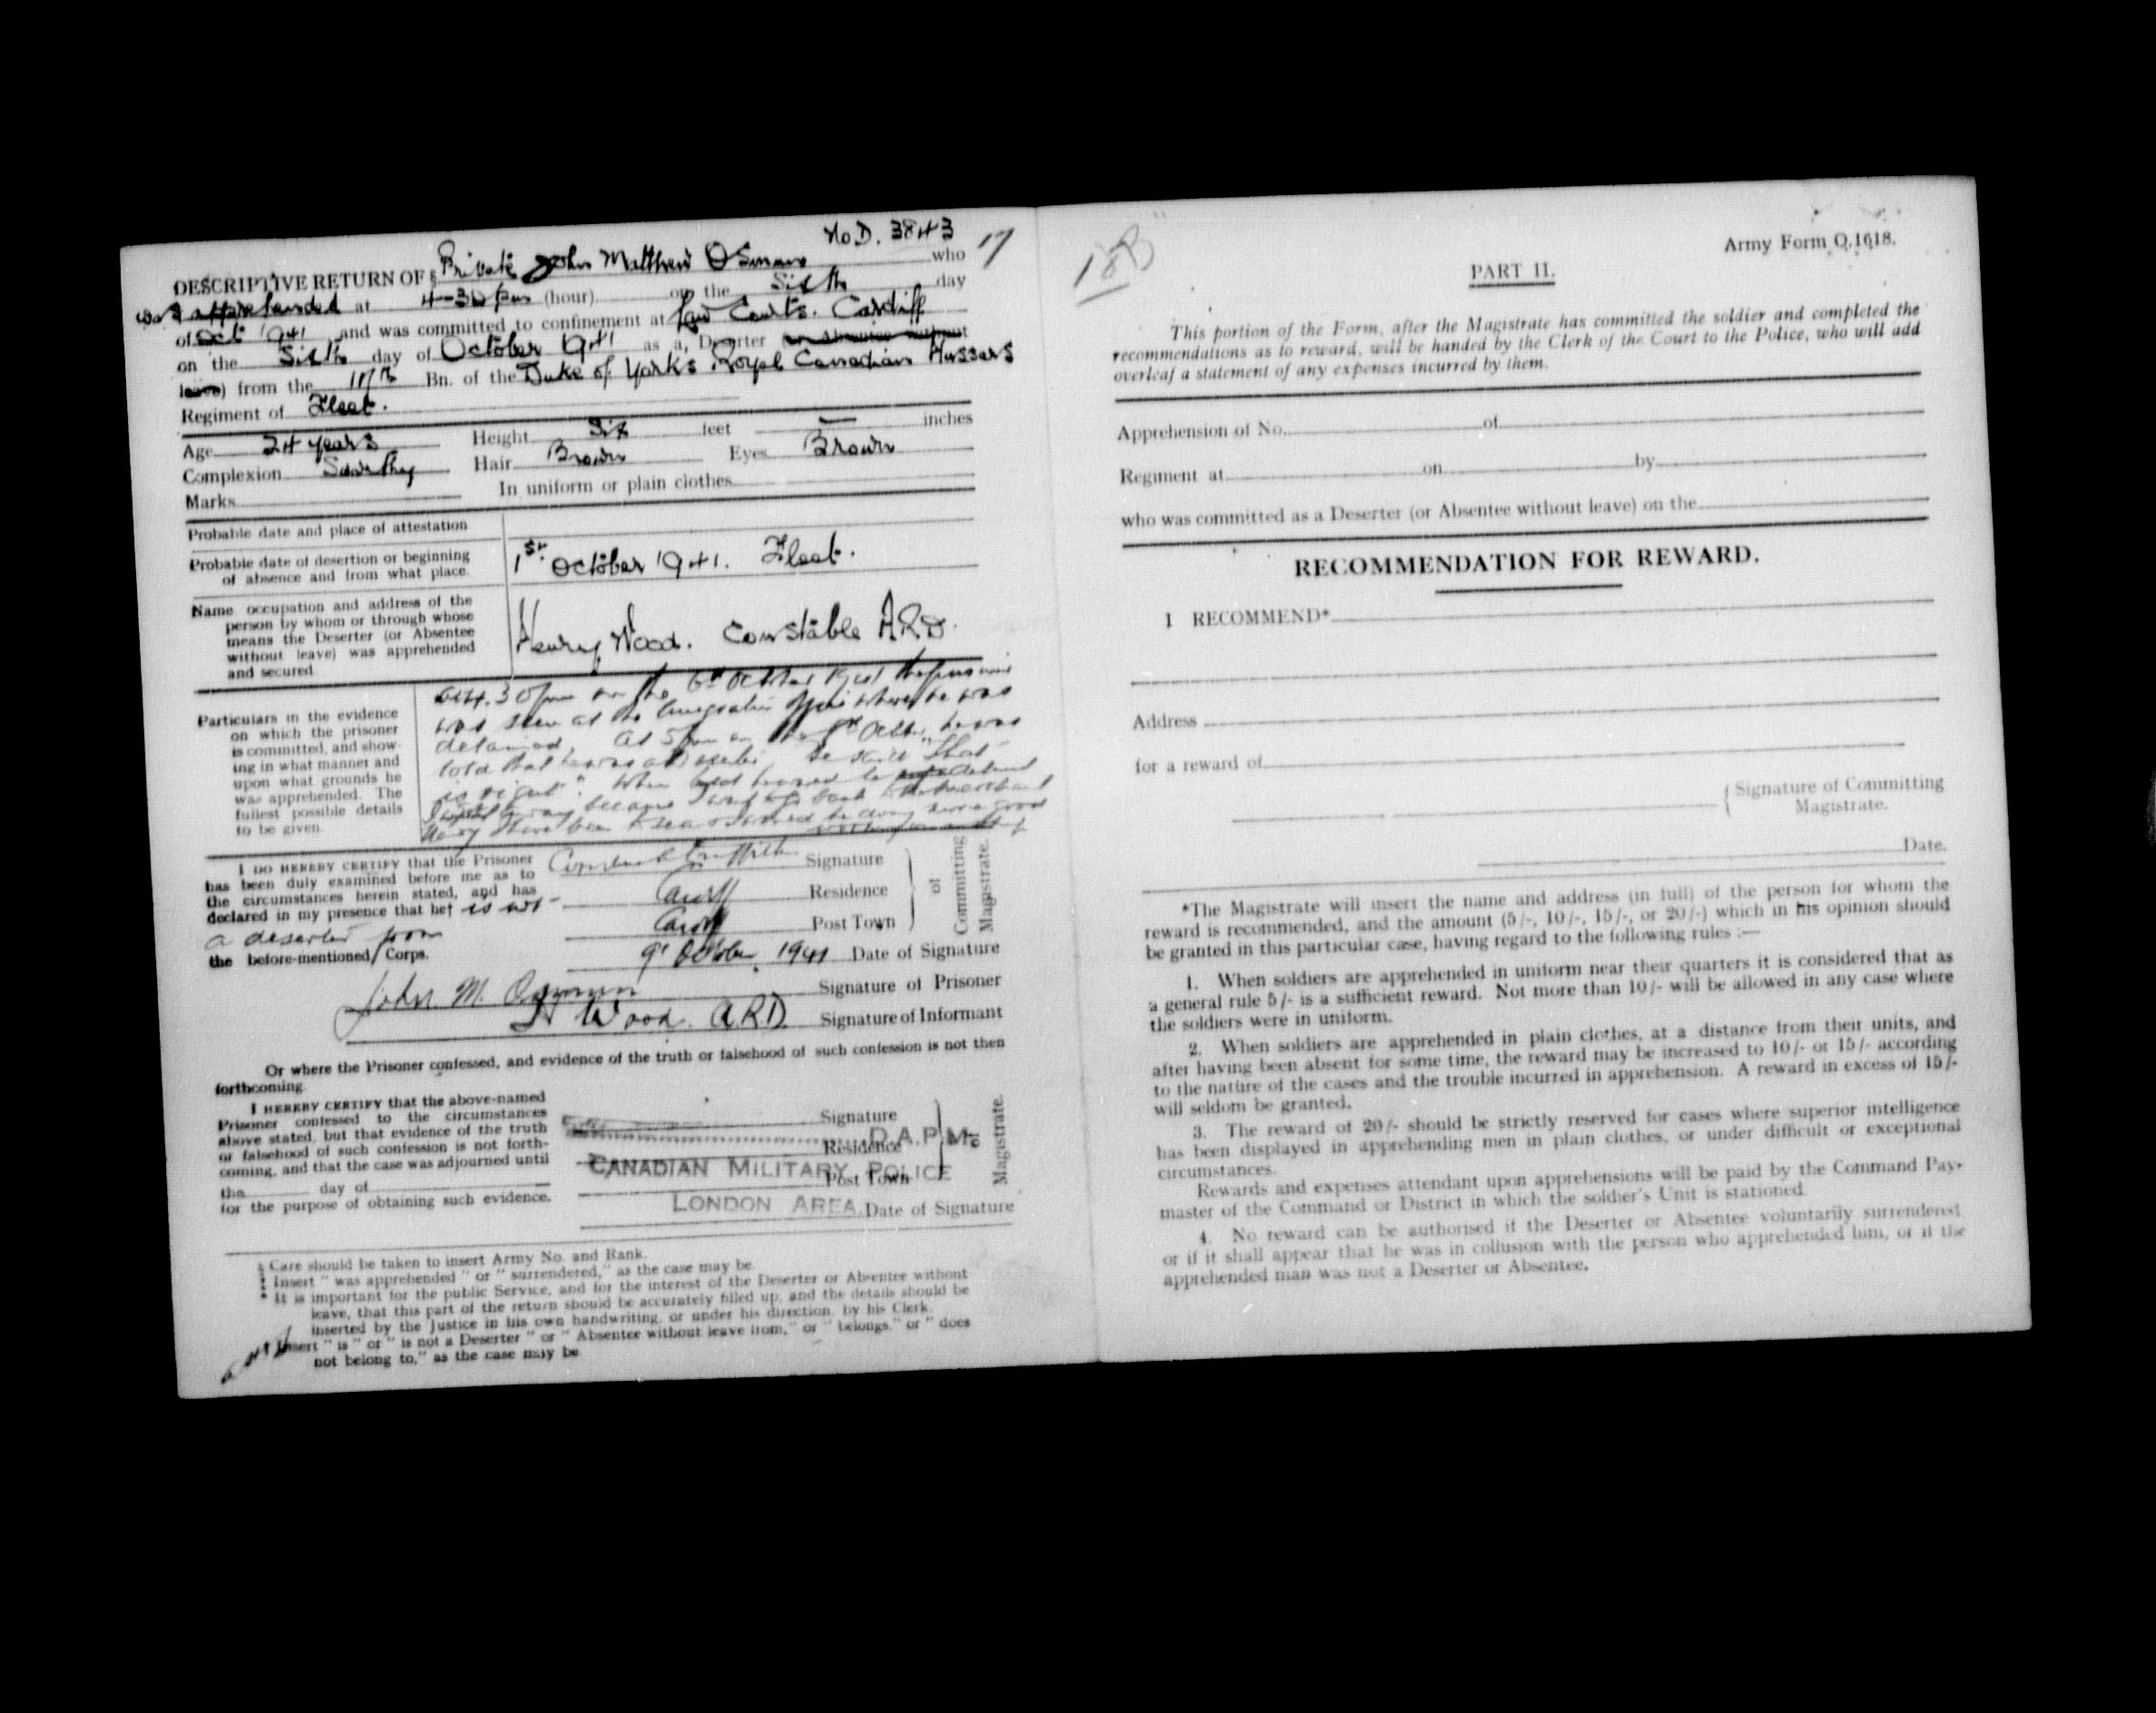 No D. 3843
17
DESCRIPTIVE RETURN OF § Private John Matthew Osman who
was apprehended at 4-30 pm (hour) on the Sixth day
of Oct 1941 and was committed to confinement at Law Courts. Cardiff
on the Sixth day of October 1941 as a, Deserter (or Absentee without
leave) from the 17th Bn. of the Duke of Yorks Royal Canadian Hussars
Regiment of Fleet.
Age 24 years Height Six feet — inches
Complexion Swarthy Hair Brown Eyes Brown
Marks In uniform or plain clothes
Probable date and place of attestation
Probable date of desertion or beginning
of absence and from what place.
1st October 1941. Fleet.
Name occupation and address of the
person by whom or through whose
means the Deserter (or Absentee
without leave) was apprehended
and secured
Henry Wood. Constable A.R.D.
Particulars in the evidence
on which the prisoner
is committed, and show-
ing in what manner and
upon what grounds he
was apprehended. The
fullest possible details
to be given.
4.30pm on the 6th October 1941 the prisoner
was seen at the Office where he was
detained. At 5pm on the he was
told that he was a he said "That
is right". When
away because I
have been to sea
I DO HEREBY CERTIFY that the Prisoner
has been duly examined before me as to
the circumstances herein stated, and has
declared in my presence that he† is not
a deserter from
the before-mentioned Corps.
Griffith Signature
Cardiff Residence
Cardiff Post Town
of
Committing
Magistrate.
9' October 1941 Date of Signature
John M. Osman Signature of Prisoner
H Wood A.R.D. Signature of Informant
Or where the Prisoner confessed, and evidence of the truth or falsehood of such confession is not then
forthcoming
I HEREBY CERTIFY that the above-named
Prisoner confessed to the circumstances
above stated, but that evidence of the truth
or falsehood of such confession is not forth-
coming, and that the case was adjourned until
the day of
for the purpose of obtaining such evidence.
Signature
D.A.P.M.
Residence
CANADIAN MILITARY POLICE
Post Town
LONDON AREA.
Date of Signature
of
Magistrate.
§ Care should be taken to insert Army No. and Rank.
‡ Insert " was apprehended " or " surrendered," as the case may be.
* It is important for the public Service, and for the interest of the Deserter or Absentee without
leave, that this part of the return should be accurately filled up, and the details should be
inserted by the Justice in his own handwriting, or under his direction, by his Clerk.
† Insert " is " or " is not a Deserter " or " Absentee without leave from," or " belongs," or " does
not belong to," as the case may be
18B
Army Form O.1618.
PART II.
This portion of the Form, after the Magistrate has committed the soldier and completed the
recommendations as to reward, will be handed by the Clerk of the Court to the Police, who will add
overleaf a statement of any expenses incurred by them.
Apprehension of No. of
Regiment at on by
who was committed as a Deserter (or Absentee without leave) on the
RECOMMENDATION FOR REWARD.
I RECOMMEND*
Address
for a reward of
Signature of Committing
Magistrate.
Date.
*The Magistrate will insert the name and address (in full) of the person for whom the
reward is recommended, and the amount (5/-, 10/-, 15/-, or 20/-) which in his opinion should
be granted in this particular case, having regard to the following rules :—
1. When soldiers are apprehended in uniform near their quarters it is considered that as
a general rule 5/- is a sufficient reward. Not more than 10/- will be allowed in any case where
the soldiers were in uniform.
2. When soldiers are apprehended in plain clothes, at a distance from their units, and
after having been absent for some time, the reward may be increased to 10/- or 15/- according
to the nature of the cases and the trouble incurred in apprehension. A reward in excess of 15/-
will seldom be granted.
3. The reward of 20/- should be strictly reserved for cases where superior intelligence
has been displayed in apprehending men in plain clothes, or under difficult or exceptional
circumstances.
Rewards and expenses attendant upon apprehensions will be paid by the Command Pay-
master of the Command or District in which the soldier's Unit is stationed.
4. No reward can be authorised if the Deserter or Absentee voluntarily surrendered,
or if it shall appear that he was in collusion with the person who apprehended him, or if the
apprehended man was not a Deserter or Absentee.